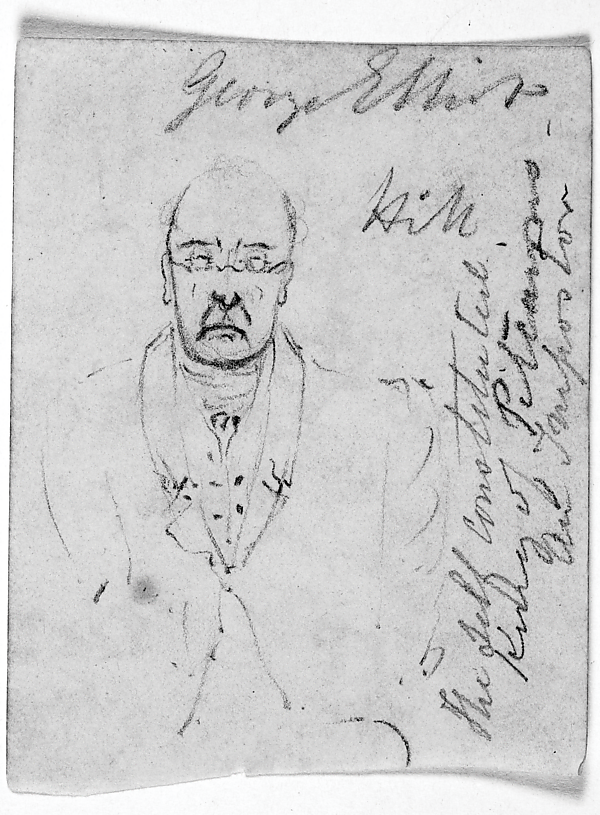 George Elliot
Hill
The self constituted
King of Pitcairns
and Impostor